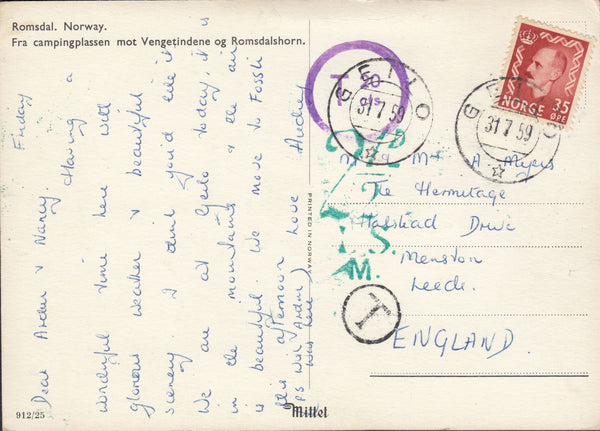 Romsdal. Norway.
Fra campingplassen mot Vengetindene og Romsdalshorn.
Friday
Dear Arder & Nancy, Having a
wonderful time here with
glorious weather & beautiful
scenery. I think you'd like it
We are at Geilo today, it is
in the mountains & the air
is beautiful. We move to Fossli
this afternoon love Audrey
PS Wish Arder
was here
PRINTED IN NORWAY
T 20 cts
GEILO
31 7 59
GEILO
31 7 59
NORGE 35 ØRE
Mr & Mrs A. Myers
The Hermitage
Halstead Drive
Menston
Leeds.
ENGLAND.
M.
T
912/25
Mittet